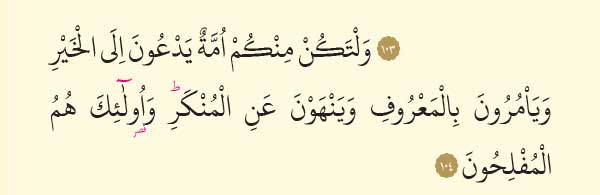 ١٠٣ وَلْتَكُنْ مِنْكُمْ اُمَّةٌ يَدْعُونَ اِلَى الْخَيْرِ
وَيَاْمُرُونَ بِالْمَعْرُوفِ وَيَنْهَوْنَ عَنِ الْمُنْكَرِۜ وَاُو۬لٰٓئِكَ هُمُ
الْمُفْلِحُونَ ١٠٤